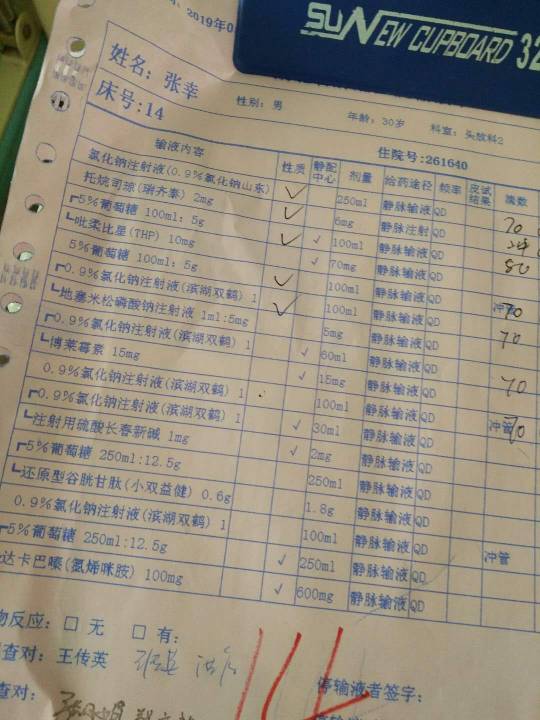 2019年0
SUNEW CUPBOARD 32
姓名: 张幸
性别: 男 年龄: 30岁 科室: 头放科2
床号:14 住院号:261640
输液内容 性质 静配中心 剂量 给药途径 频率 皮试结果 滴数
氯化钠注射液(0.9%氯化钠山东) ✓ 250ml 静脉输液 QD 70
托烷司琼(瑞齐泰) 2mg ✓ 6mg 静脉注射 QD
┏5%葡萄糖 100ml: 5g ✓ ✓ 100ml 静脉输液 QD 80
┗吡柔比星(THP) 10mg ✓ 70mg 静脉输液 QD
5%葡萄糖 100ml: 5g ✓ 100ml 静脉输液 QD 冲管 70
┏0.9%氯化钠注射液(滨湖双鹤) 1 ✓ 100ml 静脉输液 QD 70
┗地塞米松磷酸钠注射液 1ml:5mg 5mg 静脉输液 QD
┏0.9%氯化钠注射液(滨湖双鹤) 1 ✓ 60ml 静脉输液 QD 70
┗博莱霉素 15mg ✓ 15mg 静脉输液 QD
0.9%氯化钠注射液(滨湖双鹤) 1 100ml 静脉输液 QD 冲管 70
┏0.9%氯化钠注射液(滨湖双鹤) 1 ✓ 30ml 静脉输液 QD
┗注射用硫酸长春新碱 1mg ✓ 2mg 静脉输液 QD
┏5%葡萄糖 250ml:12.5g 250ml 静脉输液 QD
┗还原型谷胱甘肽(小双益健) 0.6g 1.8g 静脉输液 QD
0.9%氯化钠注射液(滨湖双鹤) 1 100ml 静脉输液 QD 冲管
┏5%葡萄糖 250ml:12.5g ✓ 250ml 静脉输液 QD
达卡巴嗪(氮烯咪胺) 100mg ✓ 600mg 静脉输液 QD
物反应: □ 无 □ 有:
查对: 王传英
停输液者签字:
查对: